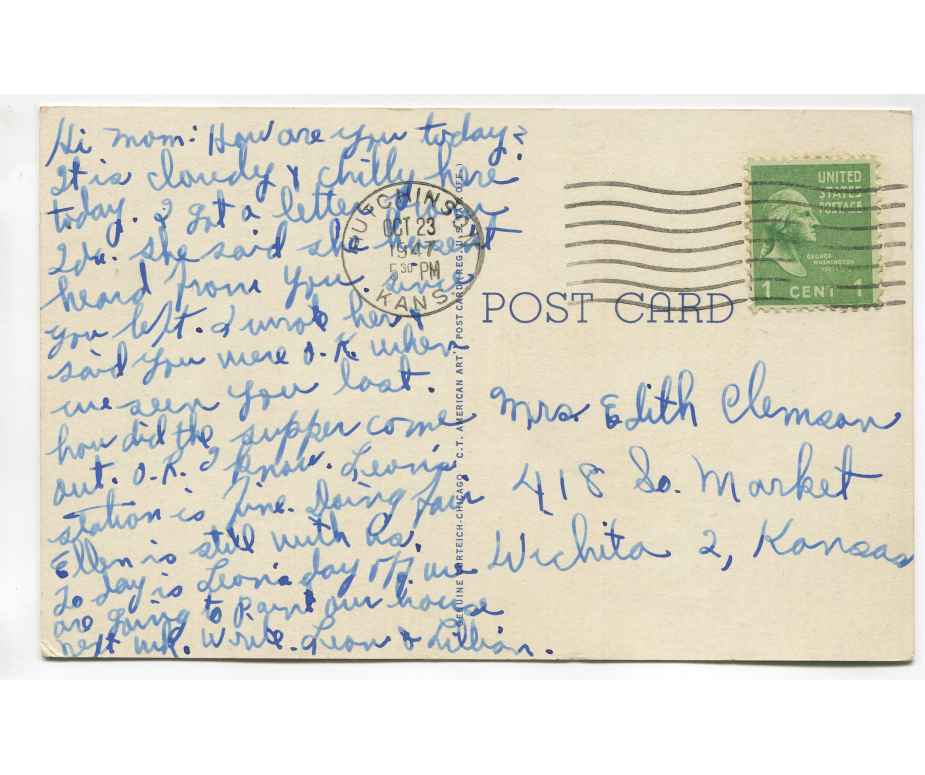 Hi mom: How are you today?
It is cloudy & chilly here
today. I got a letter from
Ida. she said she hasent
heard from you since
you left. I wrote her &
said you were O.K. when
we seen you last.
how did the supper come
out. O.K. I know. Leon's
station is fine. Doing fair
Ellen is still with us.
To day is Leon's day off. we
are going to paint our house
next wk. Write. Leon & Lillian.
GENUINE CURTEICH-CHICAGO "C.T. AMERICAN ART" POST CARD (REG. U.S. PAT. OFF.)
HUTCHINSON
OCT 23
1947
5 30 PM
KANS.
UNITED
STATES
POSTAGE
GEORGE
WASHINGTON
1 CENT 1
POST CARD
Mrs Edith Clemson
418 So. Market
Wichita 2, Kansas